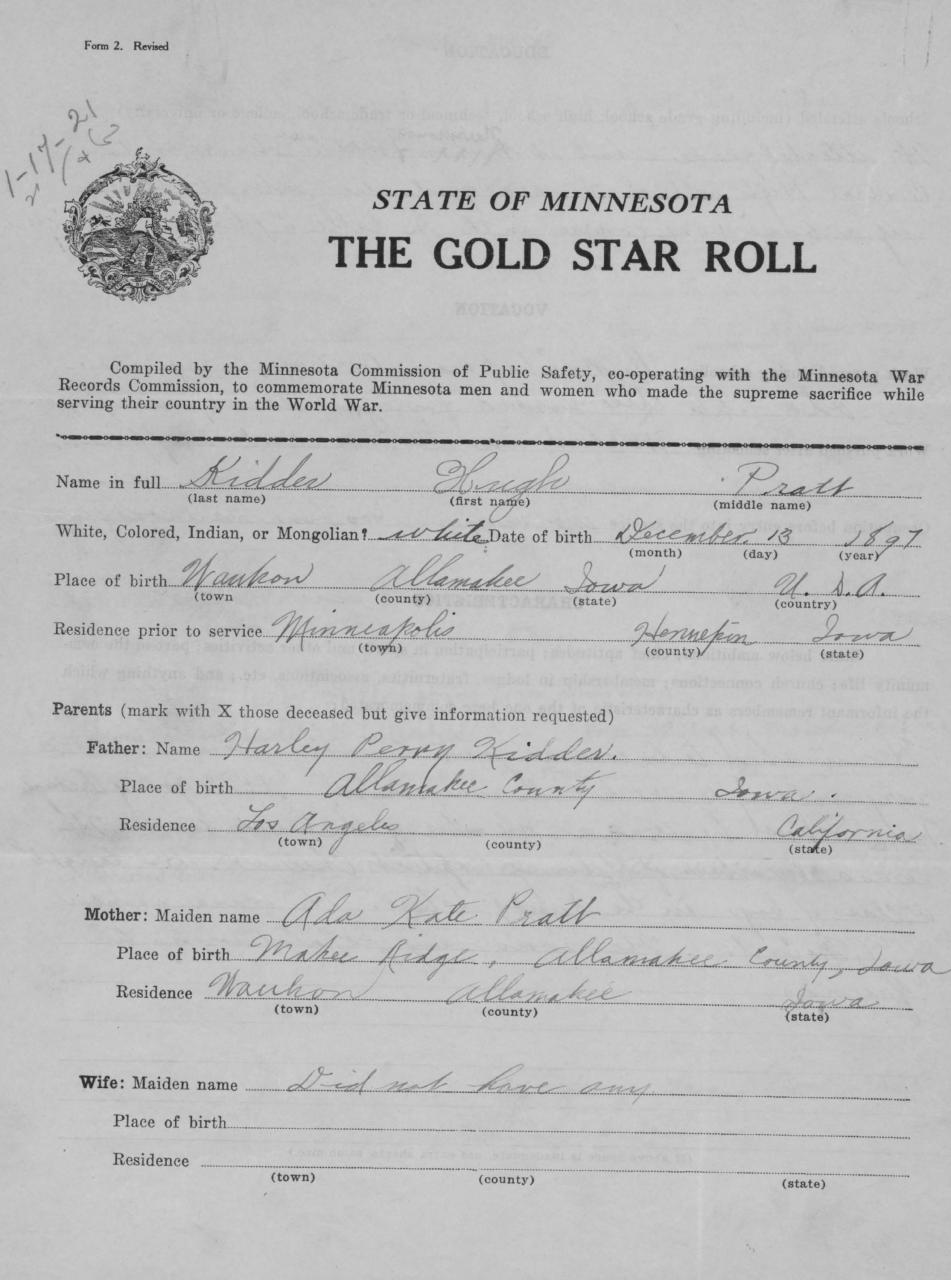 Form 2. Revised
1-17-21
STATE OF MINNESOTA
THE GOLD STAR ROLL
Compiled by the Minnesota Commission of Public Safety, co-operating with the Minnesota War
Records Commission, to commemorate Minnesota men and women who made the supreme sacrifice while
serving their country in the World War.
Name in full Kidder Hugh Pratt
(last name) (first name) (middle name)
White, Colored, Indian, or Mongolian? white Date of birth December 13 1897
(month) (day) (year)
Place of birth Waukon Allamakee Iowa U. S. A.
(town (county) (state) (country)
Residence prior to service Minneapolis Hennepin Iowa
(town) (county) (state)
Parents (mark with X those deceased but give information requested)
Father: Name Harley Perry Kidder.
Place of birth Allamakee County Iowa.
Residence Los Angeles California
(town) (county) (state)
Mother: Maiden name Ada Kate Pratt
Place of birth Makee Ridge, Allamakee County, Iowa
Residence Waukon Allamakee Iowa
(town) (county) (state)
Wife: Maiden name Did not have any
Place of birth
Residence
(town) (county) (state)